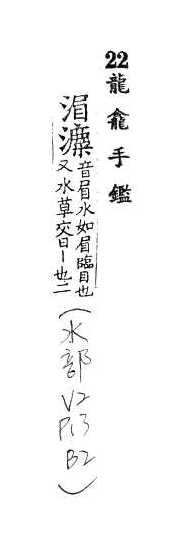 22龍龕手鑑
湄瀿音眉水如眉臨目也
又水草交曰一也二
(水部V2P13B2)